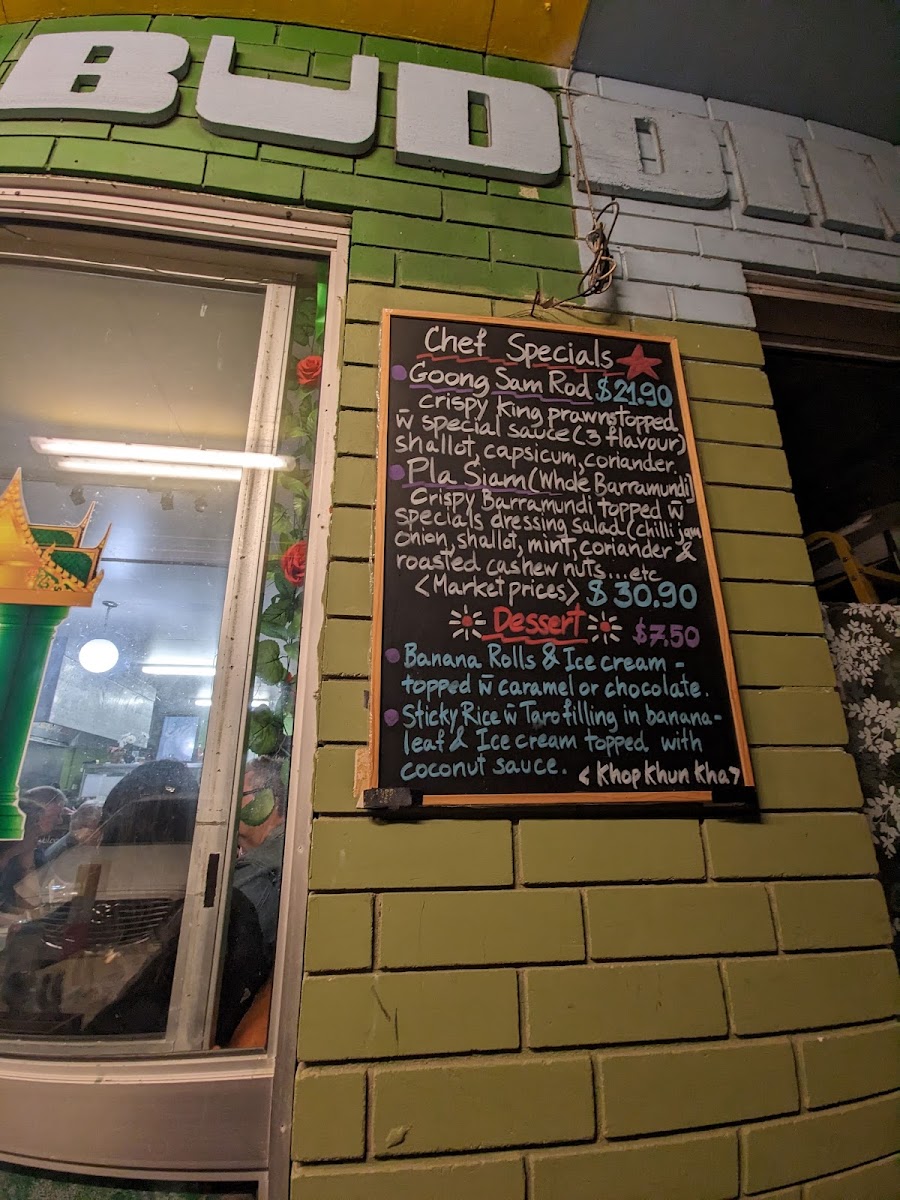 BUDOIR
Chef Specials
Goong Sam Rod $21.90
- crispy king prawns topped
w̄ special sauce (3 flavour)
shallot, capsicum, coriander.
Pla Siam (Whole Barramundi)
Crispy Barramundi topped w̄
specials dressing salad (Chilli jam
onion, shallot, mint, coriander &
roasted cashew nuts...etc
<Market prices> $30.90
Dessert $7.50
Banana Rolls & Ice cream -
topped w̄ caramel or chocolate.
Sticky Rice w̄ Taro filling in banana-
leaf & Ice cream topped with
coconut sauce. < Khop Khun Kha >